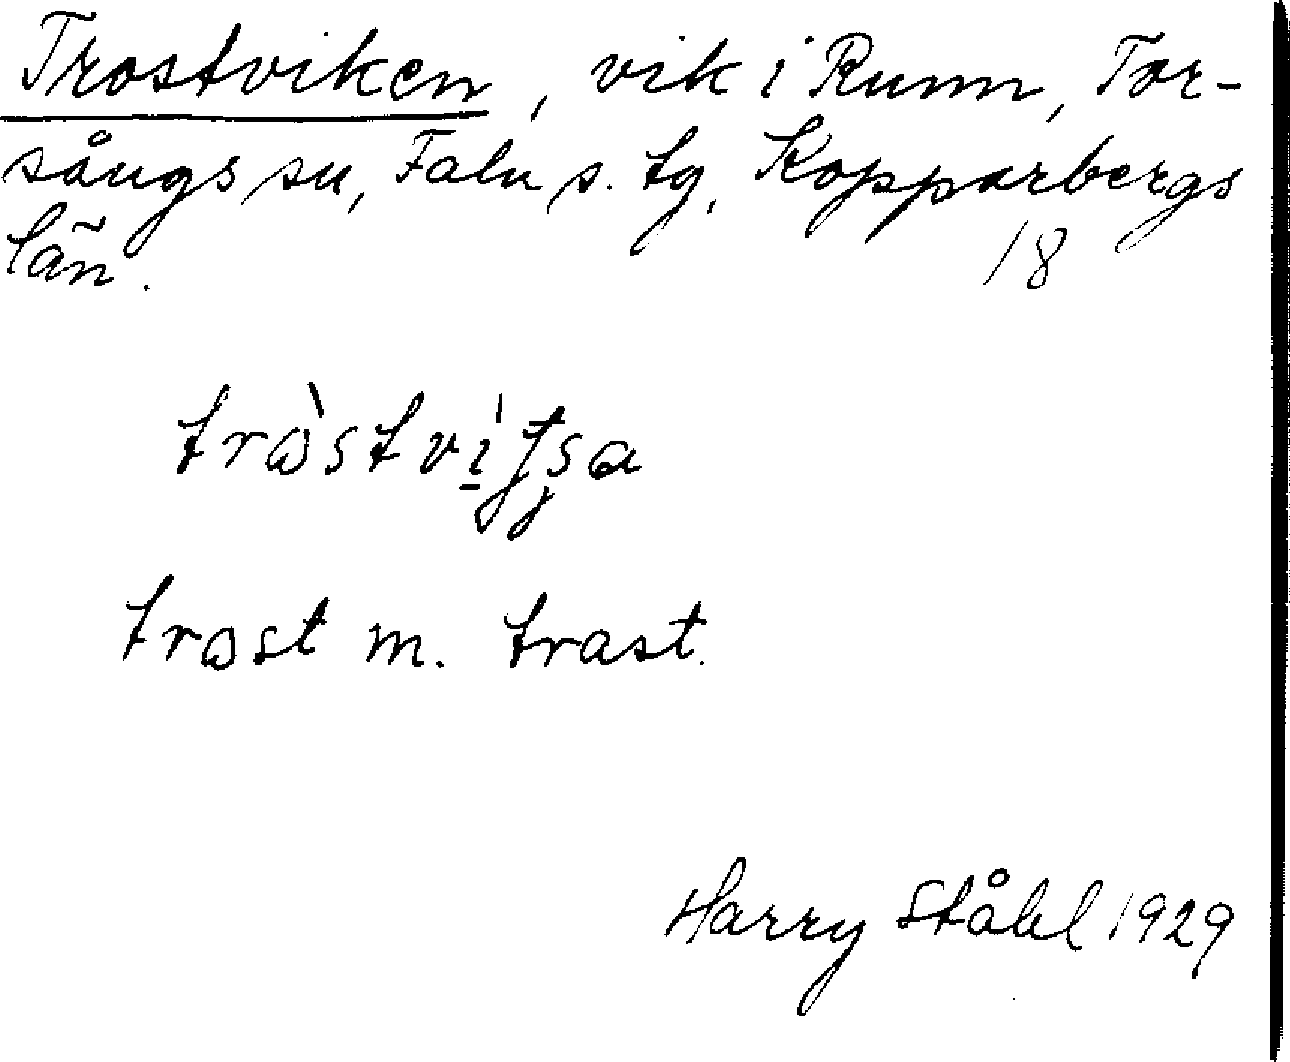 Trostviken, vik i Runn, Tor-
sångs sn, Falu s. tg, Kopparbergs
län. 18
tròstvi̠tsa
trost m. trast.
Harry Ståhl 1929